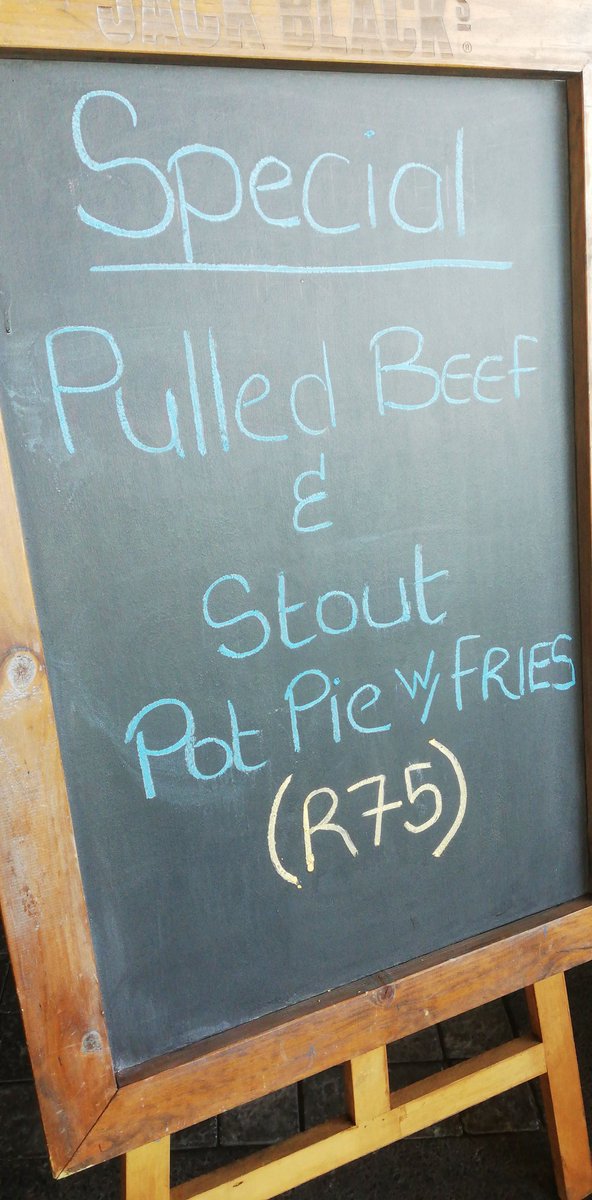 JACK BLACK'S ®
Special
Pulled BEEF
&
Stout
Pot Pie w/ FRIES
(R75)